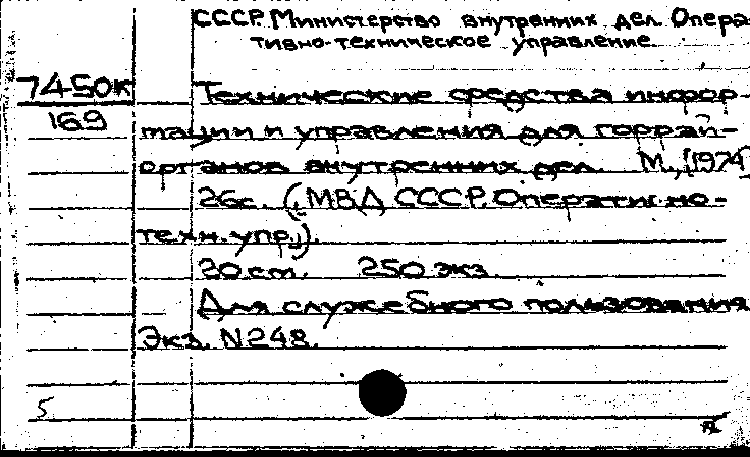 СССР. Министерство внутренних дел. Опера-
тивно-техническое управление.
74-50к
169
Технические средства инфор-
мации и управления для горрай-
органов внутренних дел. М., [1974]
26с. (МВД СССР. Оперативно-
техн. упр.).
20 см. 250 экз.
Для служебного пользования
Экз. N248.
5